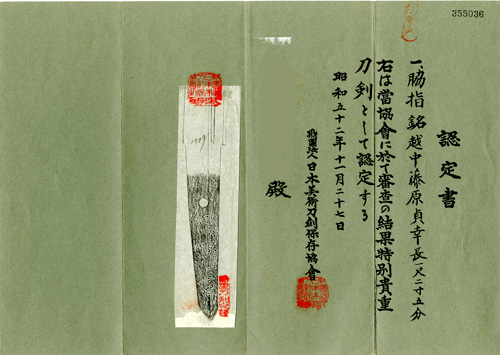 355036
認定書
一脇指 銘 越中藤原貞幸 長一尺二寸五分
右は當協會に於て審査の結果特別貴重
刀剣として認定する
昭和五十二年十一月二十七日
財団法人日本美術刀剣保存協會
殿